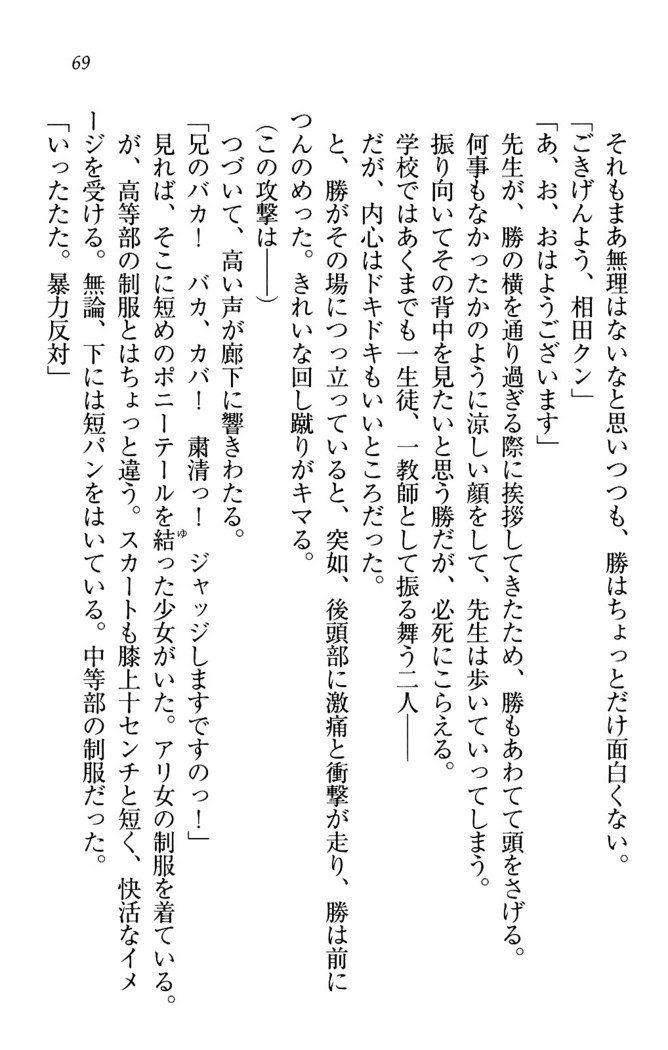 69
それもまあ無理はないなと思いつつも、勝はちょっとだけ面白くない。
「ごきげんよう、相田クン」
「あ、お、おはようございます」
先生が、勝の横を通り過ぎる際に挨拶してきたため、勝もあわてて頭をさげる。
何事もなかったかのように涼しい顔をして、先生は歩いていってしまう。
振り向いてその背中を見たいと思う勝だが、必死にこらえる。
学校ではあくまでも一生徒、一教師として振る舞う二人――
だが、内心はドキドキもいいところだった。
と、勝がその場につっ立っていると、突如、後頭部に激痛と衝撃が走り、勝は前に
つんのめった。きれいな回し蹴りがキマる。
(この攻撃は――)
つづいて、高い声が廊下に響きわたる。
「兄のバカ！　バカ、カバ！　粛清っ！　ジャッジしますですのっ！」
見れば、そこに短めのポニーテールを結ゆった少女がいた。アリ女の制服を着ている。
が、高等部の制服とはちょっと違う。スカートも膝上十センチと短く、快活なイメ
ージを受ける。無論、下には短パンをはいている。中等部の制服だった。
「いったたた。暴力反対」